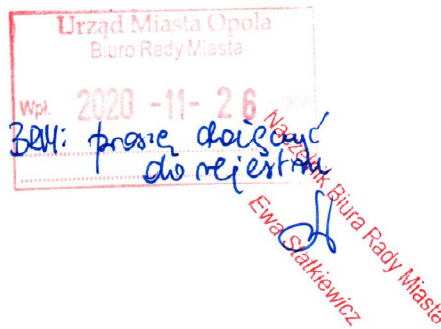 Urząd Miasta Opola
Biuro Rady Miasta
Wpł. 2020 -11- 26
BRM: proszę dołączyć
do rejestru
Naczelnik Biura Rady Miasta
Ewa Statkiewicz